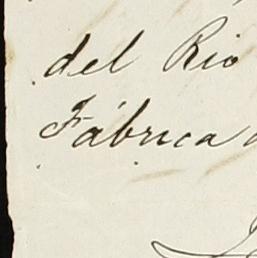 del Rio
Fábrica